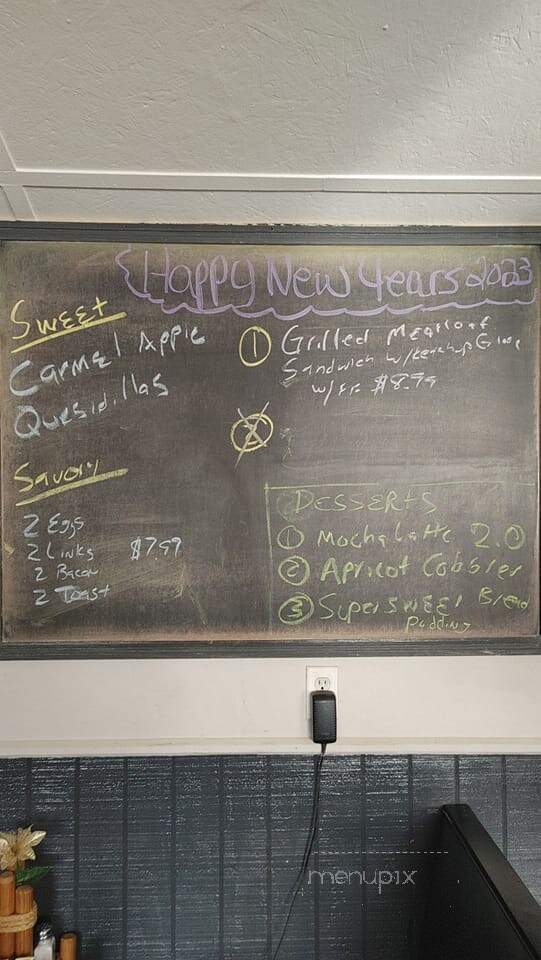 Happy New Years 2023
Sweet
Carmel Apple
Quesidillas
Savory
2 Eggs
2 Links $7.99
2 Bacon
2 Toast
1 Grilled Meatloaf
Sandwich w/Ketchup Glaze
w/FF $8.99
2
DESSERTS
1 Mocha Latte 2.0
2 Apricot Cobbler
3 Supersweet Bread
Pudding
menupix